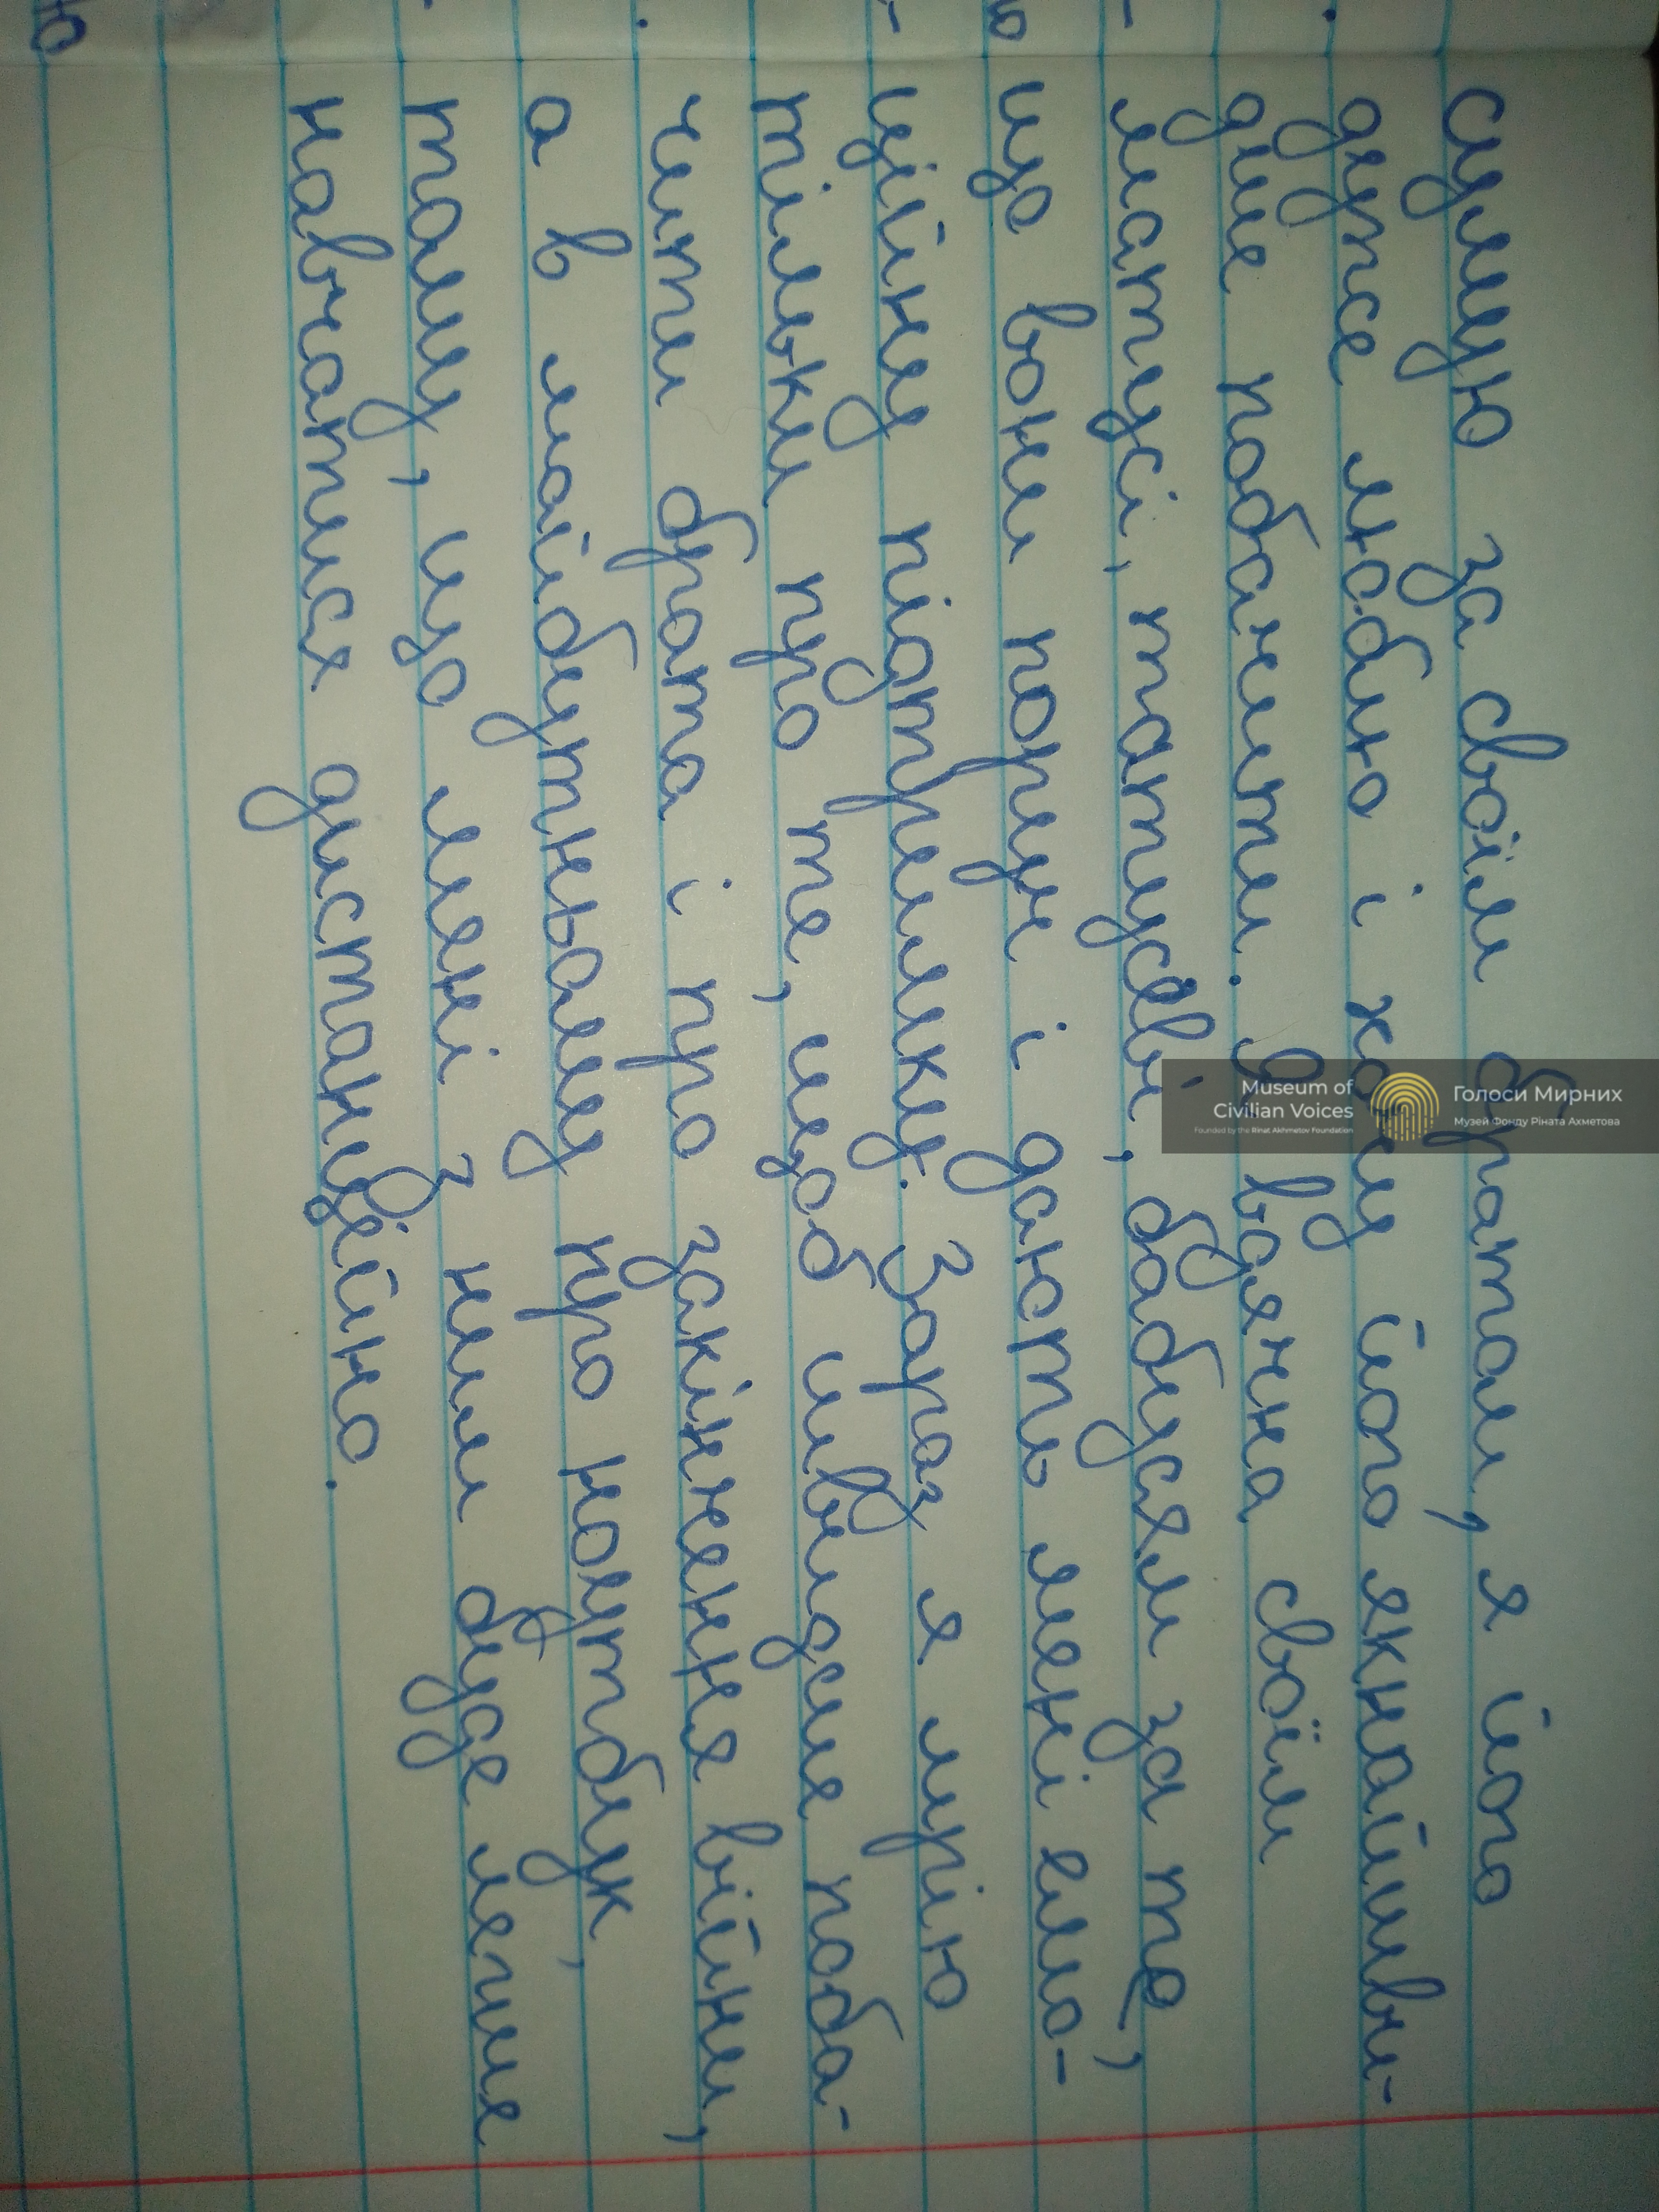 сумую за своїм братом, я його
дуже люблю і хочу його якнайшви-
дше побачити. Я вдячна своїм
матусі, татусеві, бабусям за те,
що вони поруч і дають мені емо-
ційну підтримку. Зараз я мрію
тільки про те, щоб швидше поба-
чити брата і про закінчення війни,
а в майбутньому про ноутбук,
тому, що мені з ним буде легше
навчатися дистанційно.
Голоси Мирних
Музей Фонду Ріната Ахметова
Museum of
Civilian Voices
Founded by the Rinat Akhmetov Foundation